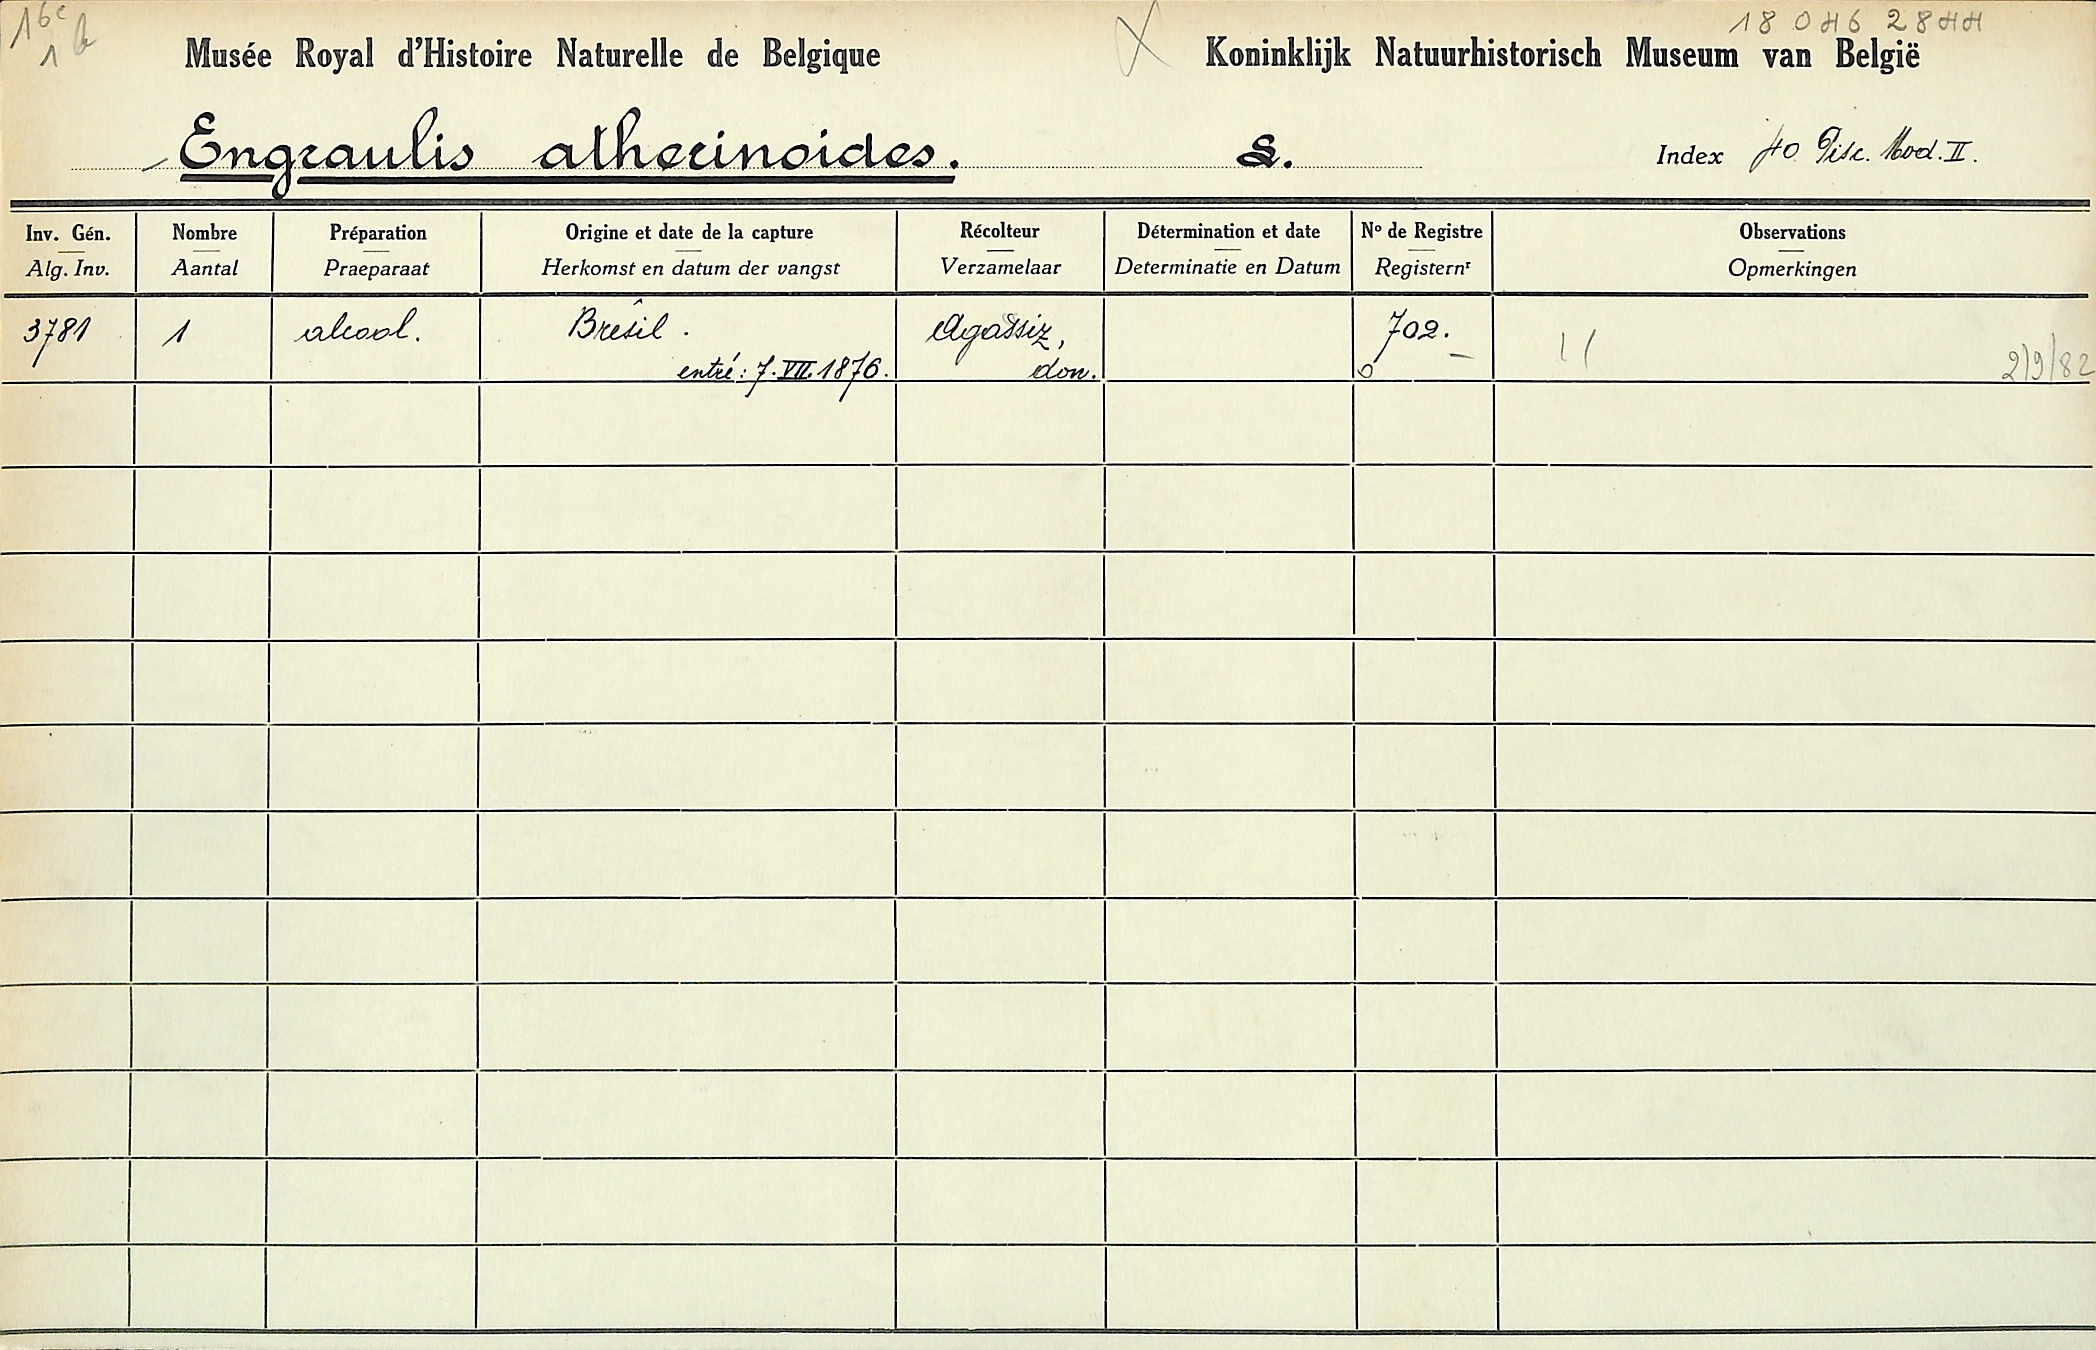 18 046 2844
Musée Royal d'Histoire Naturelle de Belgique
Koninklijk Natuurhistorisch Museum van België
Engraulis atherinoides.
Index 40 Pisc. Mod. II.
Inv. Gén. Nombre Préparation Origine et date de la capture Récolteur Détermination et date Nº de Registre Observations
Alg. Inv. Aantal Praeparaat Herkomst en datum der vangst Verzamelaar Determinatie en Datum Registernʳ Opmerkingen
3781 1 alcool. Brésil. Agassiz, 702.
entré: 7.VII.1876. don. 2/9/82